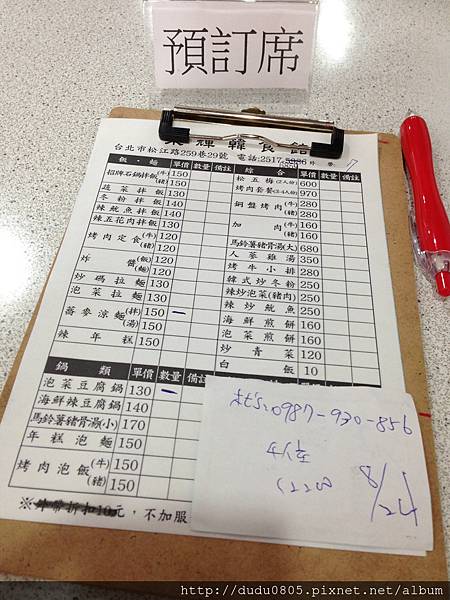 預訂席
輝韓食館
台北市松江路259巷29號 電話:2517-5386
飯‧麵 單價 數量 備註
招牌石鍋拌飯(牛) 150
(豬) 150
蔬菜拌飯 130
冬粉拌飯 140
辣魷魚拌飯 140
辣五花肉拌飯 130
烤肉定食(牛) 120
(豬) 120
炸醬(飯) 120
(麵) 120
炒碼拉麵 130
泡菜拉麵 130
蕎麥涼麵(拌) 150 一
(湯) 150
辣年糕 150
鍋類 單價 數量 備註
泡菜豆腐鍋 130 一
海鮮辣豆腐鍋 140
馬鈴薯豬骨湯(小) 170
年糕泡麵 150
烤肉泡飯(牛) 150
(豬) 150
綜合 單價 數量 備註
松五梅(2人份) 600
烤肉套餐(3-4人份) 970
銅盤烤肉(牛) 280
(豬) 280
加肉(牛) 160
(豬) 160
馬鈴薯豬骨湯(大) 680
人蔘雞湯 350
烤牛小排 280
韓式炒冬粉 250
辣炒泡菜(豬肉) 250
辣炒魷魚 250
海鮮煎餅 160
泡菜煎餅 150
炒青菜 120
白飯 10
0987-930-856
4位
8/24
元,不加服
http://dudu0805.pixnet.net/album